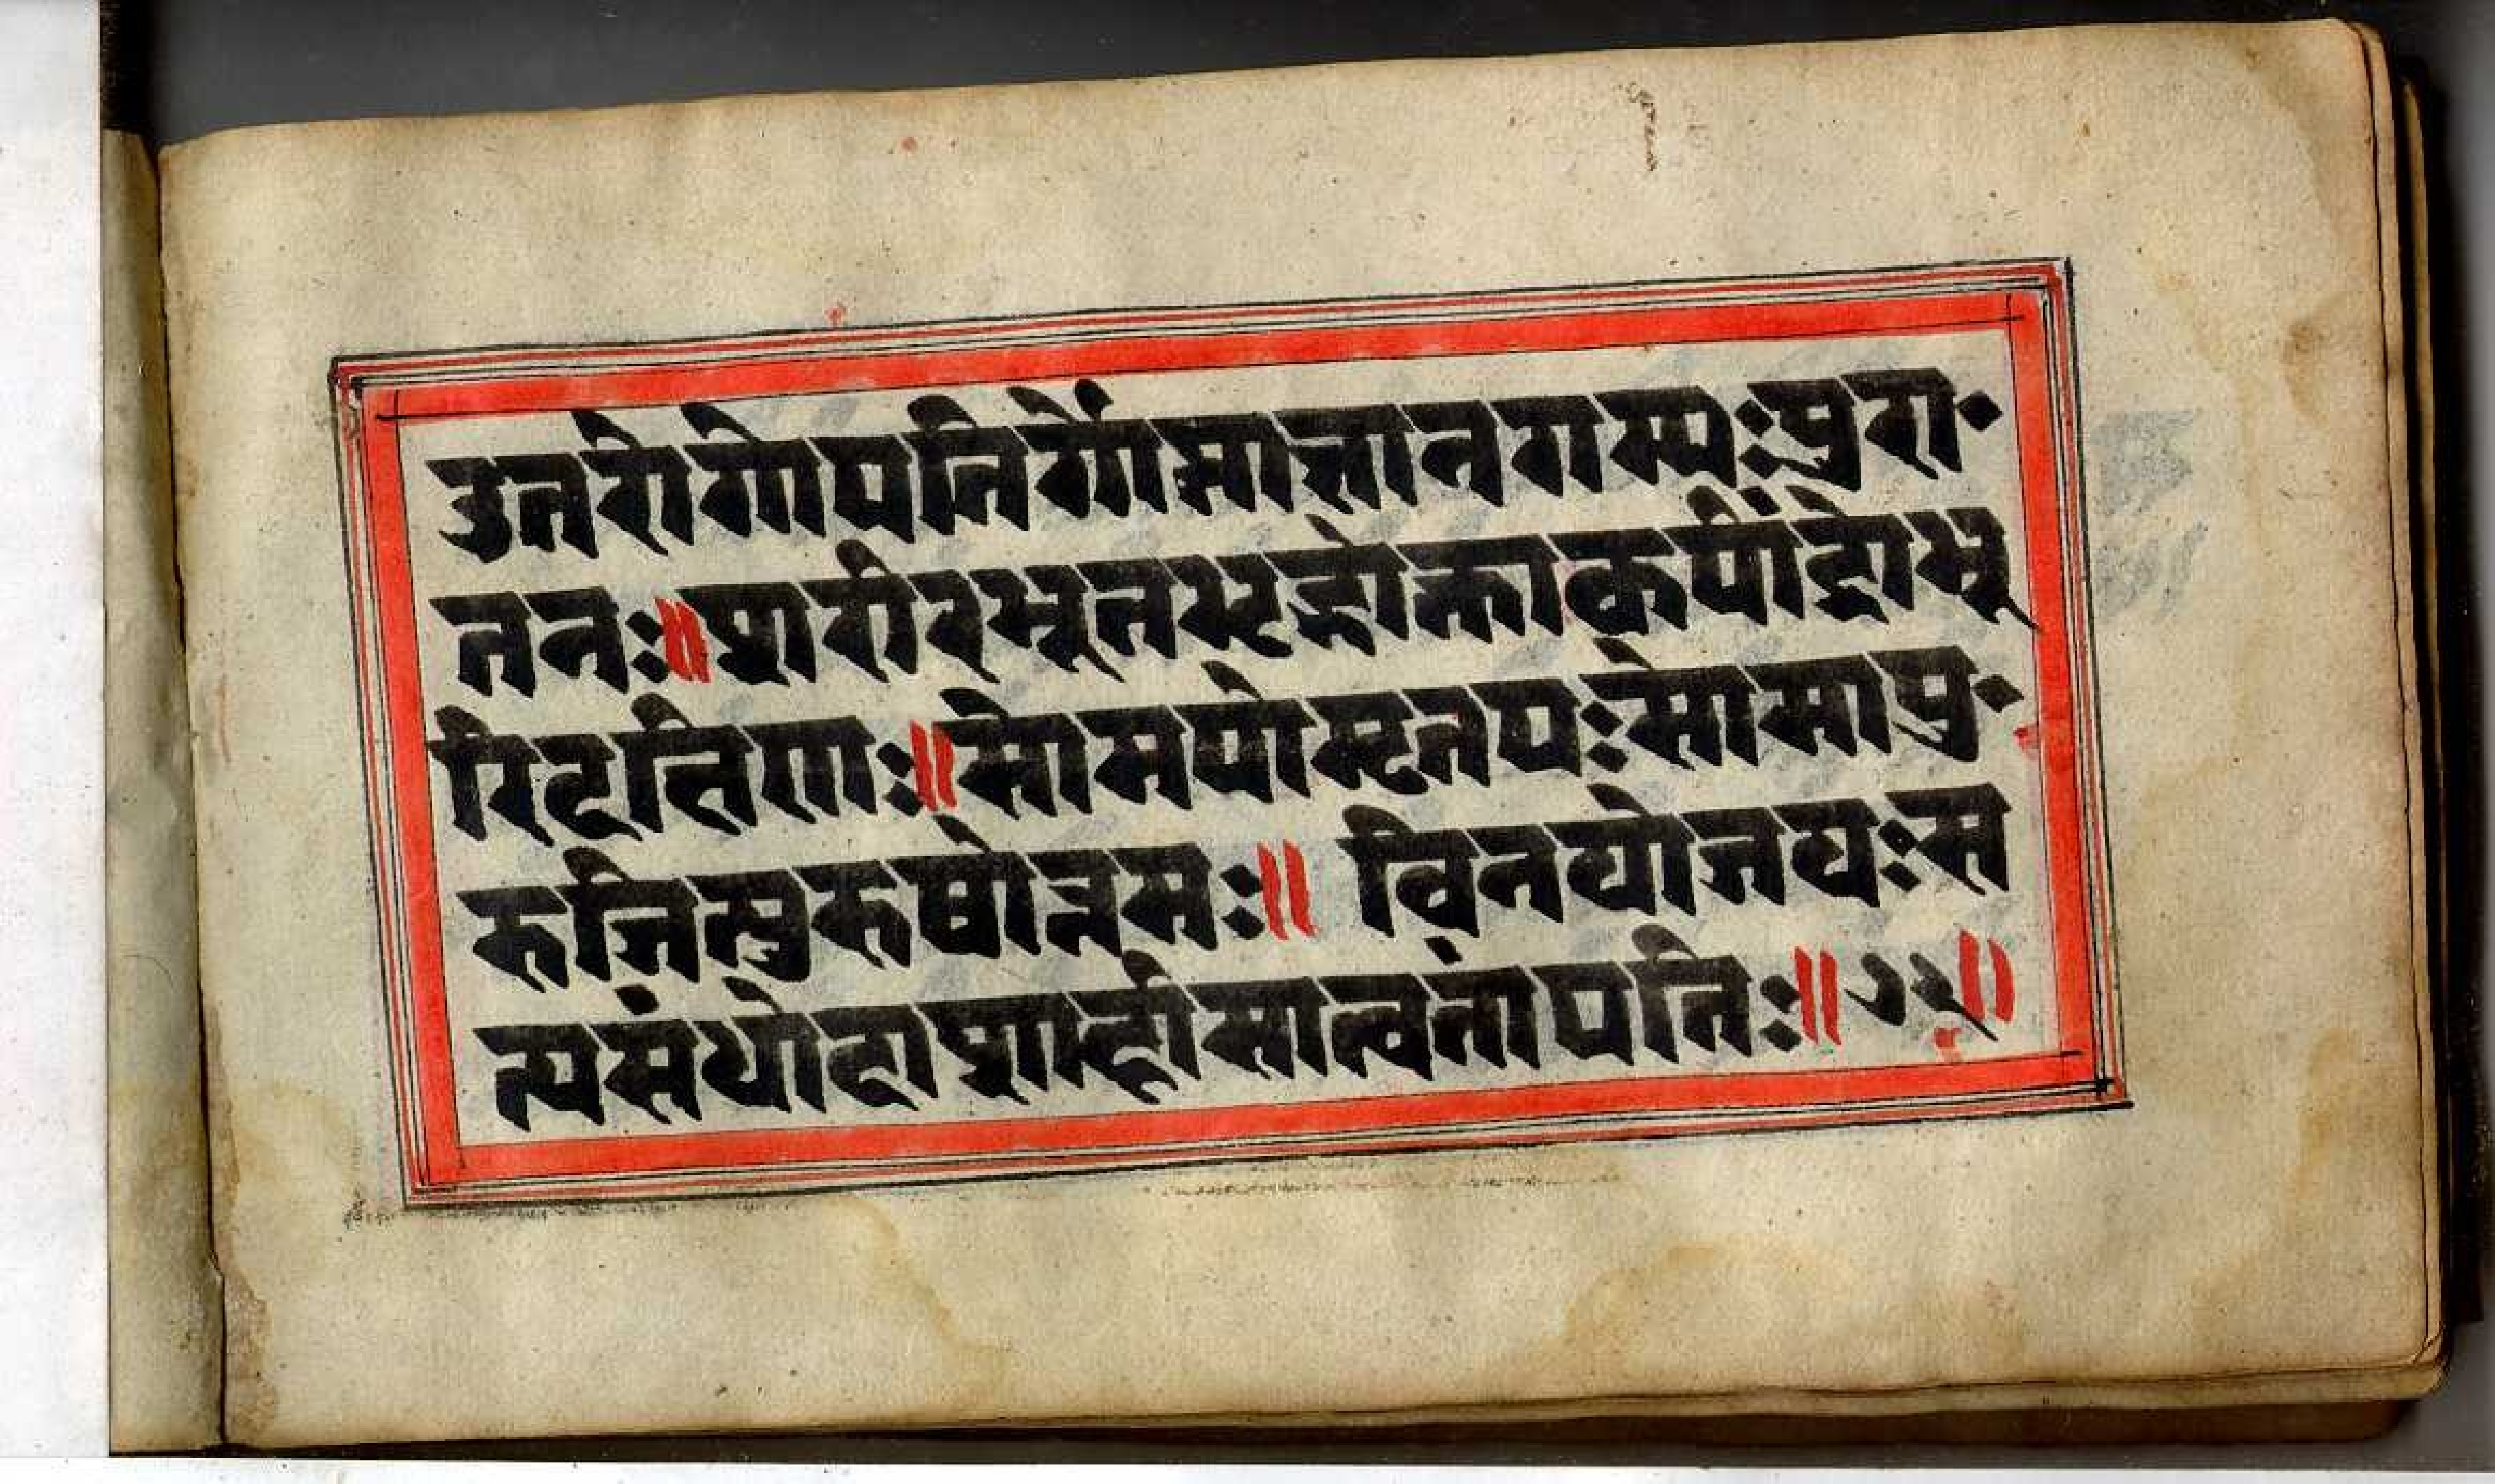 उत्तरोगोपतिर्गोप्ताज्ञानगम्यःपुरा॰
तनः॥शरीरभूतभृद्भोक्ताकपींद्रोभू
रिदक्षिणः॥सोमपोमृतपःसोमःपु॰
रुजित्पुरुषोत्तमः॥ विनयोजयःस
त्यसंधोदाशार्हःसात्वतांपतिः॥७२॥